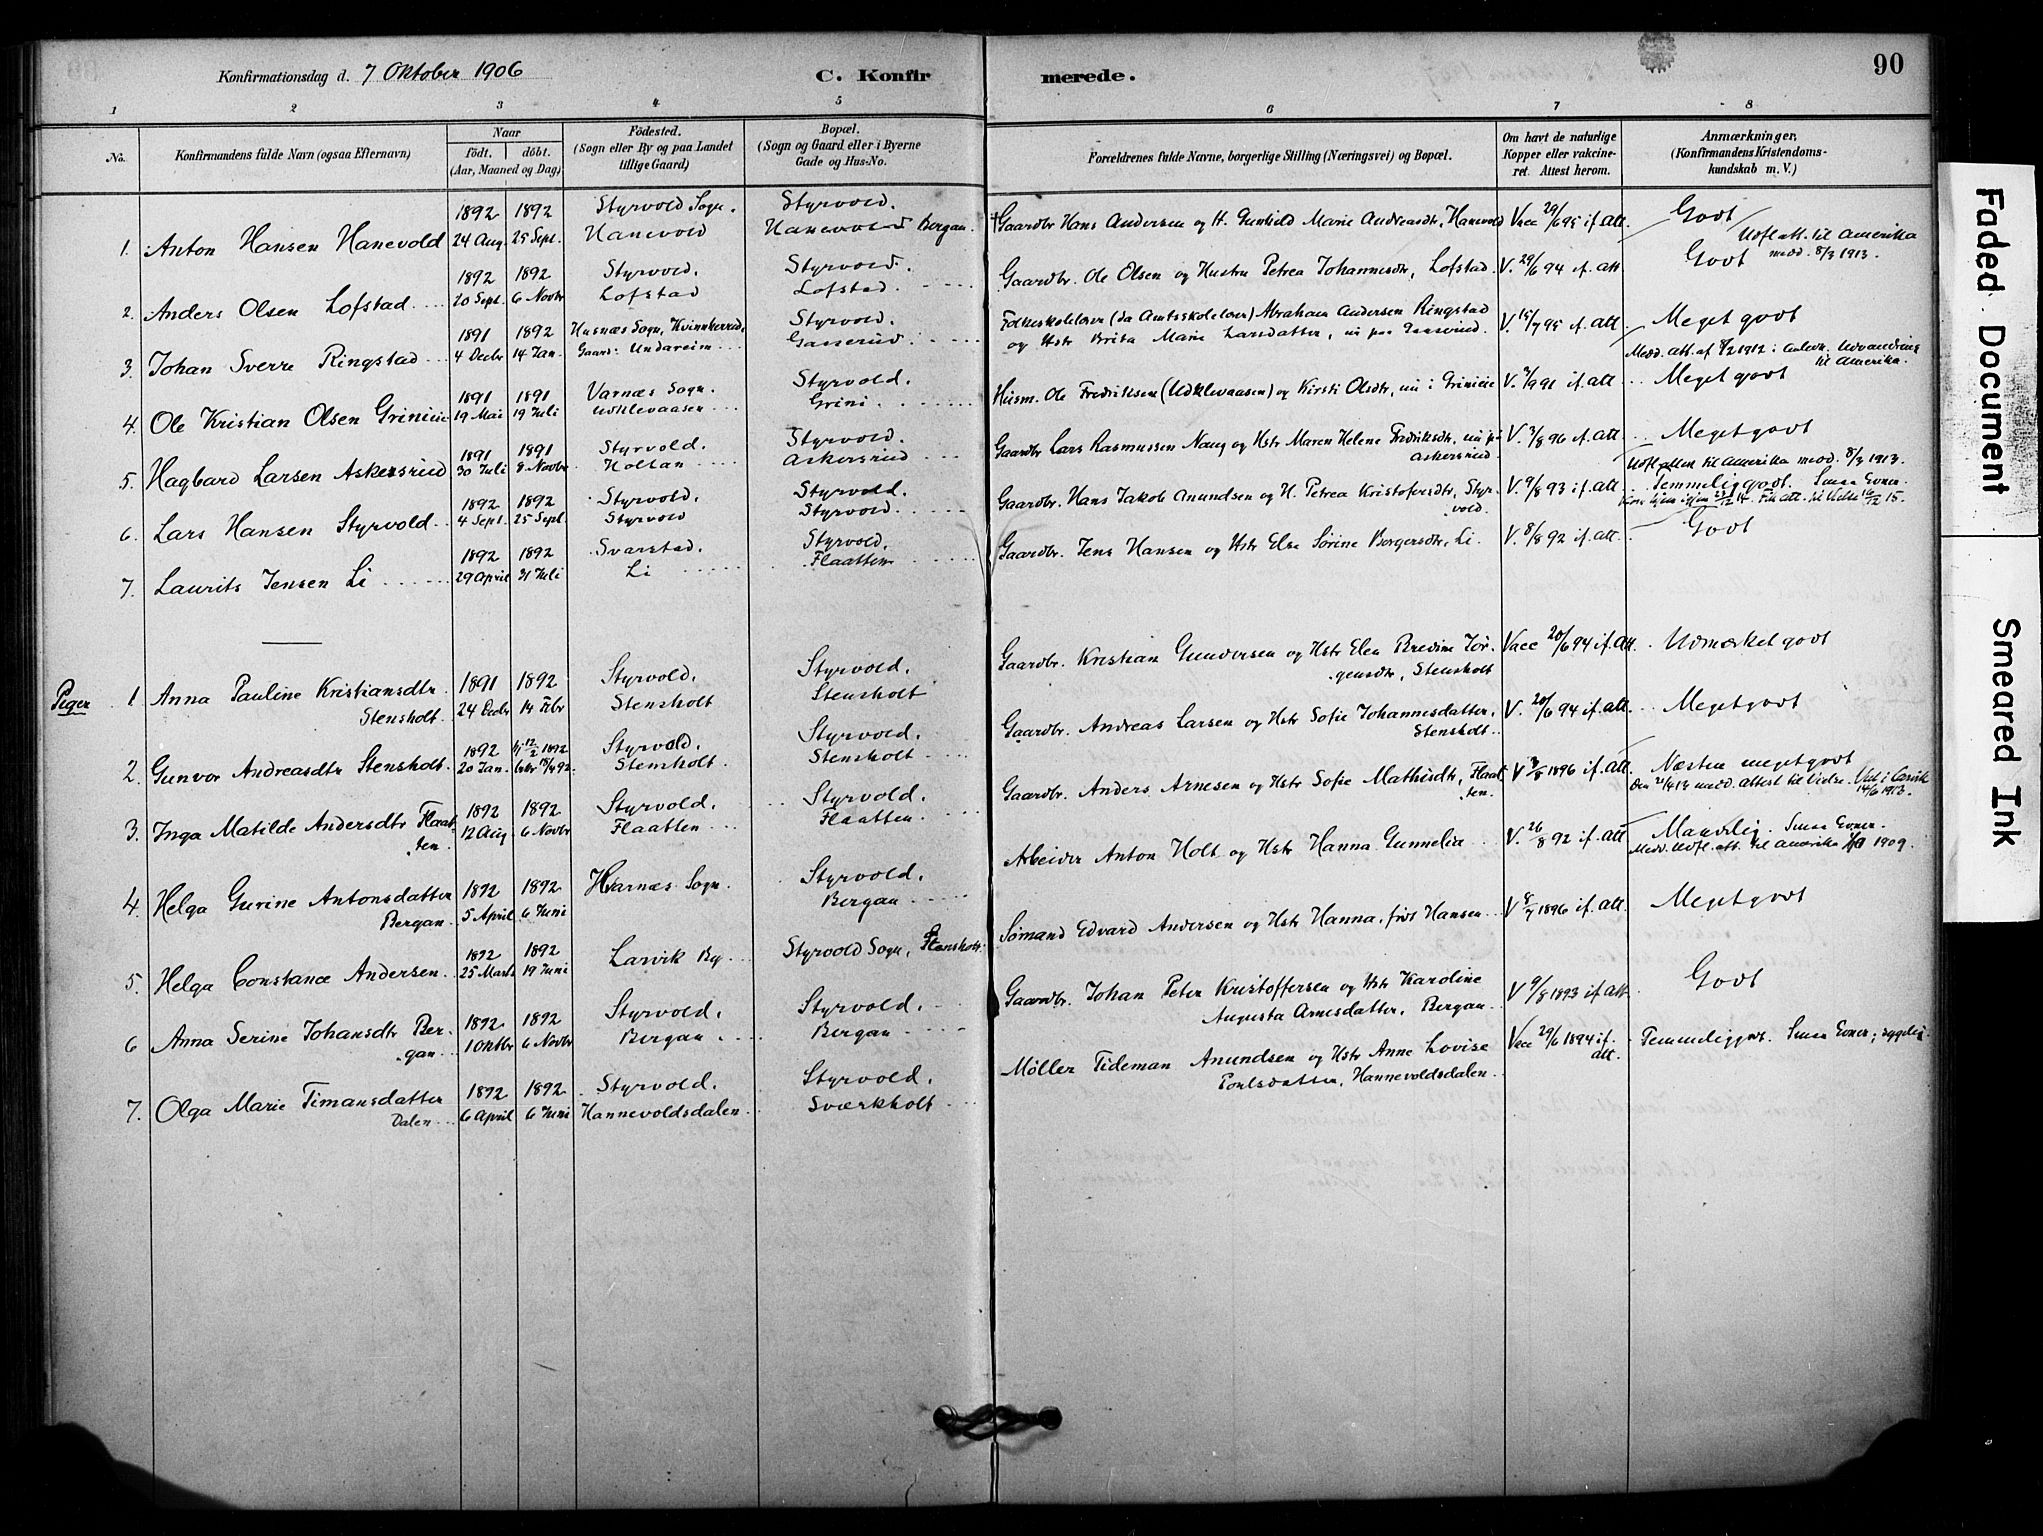 Konfirmationsdag d. 7 Oktober 1906
C. Konfir merede.
90
1 2 3 4 5 6 7 8
No.
Konfirmandens fulde Navn (ogsaa Efternavn)
Naar
födt. döbt.
(Aar, Maaned og Dag)
Födested.
(Sogn eller By og paa Landet
tillige Gaard)
Bopæl.
(Sogn og Gaard eller i Byerne
Gade og Hus-No.
Forældrenes fulde Navne, borgerlige Stilling (Næringsvei) og Bopæl.
Om havt de naturlige
Kopper eller vakcine-
ret. Attest herom.
Anmærkninger,
(Konfirmandens Kristendoms-
kundskab m. V.)
1892 1892 Styrvold Sogn. Styrvold.
1. Anton Hansen Hanevold 24 Aug. 25 Sept. Hanevold Hanevold Bergan. Gaardbr Hans Andersen og H. Gunhild Marie Andreasdtr, Hanevold Vacc 29/6 95 if. att. Godt
Udfl. att. til Amerika
medd. 8/3 1913.
1892 1892 Styrvold. Styrvold.
2. Anders Olsen Lofstad 20 Sept. 6 Novbr Lofstad Lofstad. Gaardbr. Ole Olsen og Hustru Petrea Johannesdtr, Lofstad. V. 29/6 94 if. att. Godt
1891 1892 Husnæs Sogn, Kvinnherred, Styrvold.
3. Johan Sverre Ringstad 4 Decbr 14 Jan. Gaard: Undareim Gasserud. Folkeskolelærer (da Amtsskolelærer) Abraham Andersen Ringstad
og Hstr Brita Marie Larsdatter, nu paa Gasserud. V. 15/7 95 if. att. Meget godt
Medd. att. af 1/2 1912 i anledn. Udvandring
til Amerika.
1891 1891 Varnæs Sogn. Styrvold.
4. Ole Kristian Olsen Griniie 19 Mai 19 Juli Udklevaasen Grini. Husm. Ole Fredriksen (Udklevaasen) og Kirsti Olsdtr, nu i Griniie V. 3/9 91 if. att. Meget godt
1891 1891 Styrvold. Styrvold.
5. Hagbard Larsen Askersrud 30 Juli 8 Novbr. Holtan Askersrud Gaardbr Lars Rasmussen Naug og Hstr Maren Helene Fredriksdtr, nu på
Askersrud. V. 3/8 96 if. att. Meget godt
Udfl. atten til Amerika medd. 8/3 1913.
1892 1892 Styrvold. Styrvold.
6. Lars Hansen Styrvold 4 Sept. 25 Sept. Styrvold Styrvold. Gaardbr. Hans Jakob Anundsen og H. Petrea Kristofersdtr, Styr-
vold. V. 9/8 93 if. att. Temmelig godt. Smaa Evner.
1892 1892 Svarstad. Styrvold.
7. Laurits Jensen Li 29 April 31 Juli Li Flaatten Gaardbr. Jens Hansen og Hstr Else Sørine Borgersdtr, Li. V. 8/8 92 if. att. Godt
Piger
1891 1892 Styrvold. Styrvold.
1 Anna Pauline Kristiansdtr
Stensholt. 24 Decbr 14 Febr Stensholt Stensholt Gaardbr. Kristian Gundersen og Hstr Elen Bredine Jør-
gensdtr, Stensholt Vacc 20/6 94 if. att. Udmærket godt
1892 hj 12/2 1892 Styrvold. Styrvold.
2. Gunvor Andreasdtr Stensholt. 20 Jan. bekr 18/4 92. Stensholt. Stensholt. Gaardbr. Andreas Larsen og Hstr Sofie Johannesdatter,
Stensholt. V. 20/6 94 if. att. Meget godt
1892 1892 Styrvold. Styrvold.
3. Inga Matilde Andersdtr Flaat-
ten. 12 Aug 6 Novbr Flaatten Flaatten. Gaardbr. Anders Arnesen og Hstr Sofie Mathisdtr, Flaat-
ten. V 3/8 1896 if. att. Næsten meget godt
14/6 1913.
1892 1892 Harnæs Sogn. Styrvold.
4. Helga Gurine Antonsdatter
Bergan. 5 April 6 Juni Bergan Arbeider Anton Holt og Hstr Hanna Gunnelia V. 26/8 92 if. att. Maadelig. Smaa Evner.
Medd. Udfl. att. til Amerika 1909.
1892 1892
5. Helga Constance Andersen. 25 Marts 19 Juni Larvik By. Styrvold Sogn, Stensholt. Sømand Edvard Andersen og Hstr Hanna, født Hansen V 8/7 1896 if. att. Meget godt
1892 1892 Styrvold. Styrvold.
6 Anna Serine Johansdtr Ber-
gan. 1 Oktbr 6 Novbr Bergan. Bergan Gaardbr. Johan Peter Kristoffersen og Hstr Karoline
Augusta Arnesdatter, Bergan. V 9/8 1893 if. att. Godt
1892 1892 Styrvold. Styrvold.
7. Olga Marie Timansdatter
Dalen 6 April 6 Juni Hannevoldsdalen Sværkholt Møller Tideman Anundsen og Hstr Anne Lovise
Poulsdatter, Hannevoldsdalen. Vacc 29/6 1894 if.
att. Temmelig godt. Smaa Evner; sygelig.
Faded Document
Smeared Ink